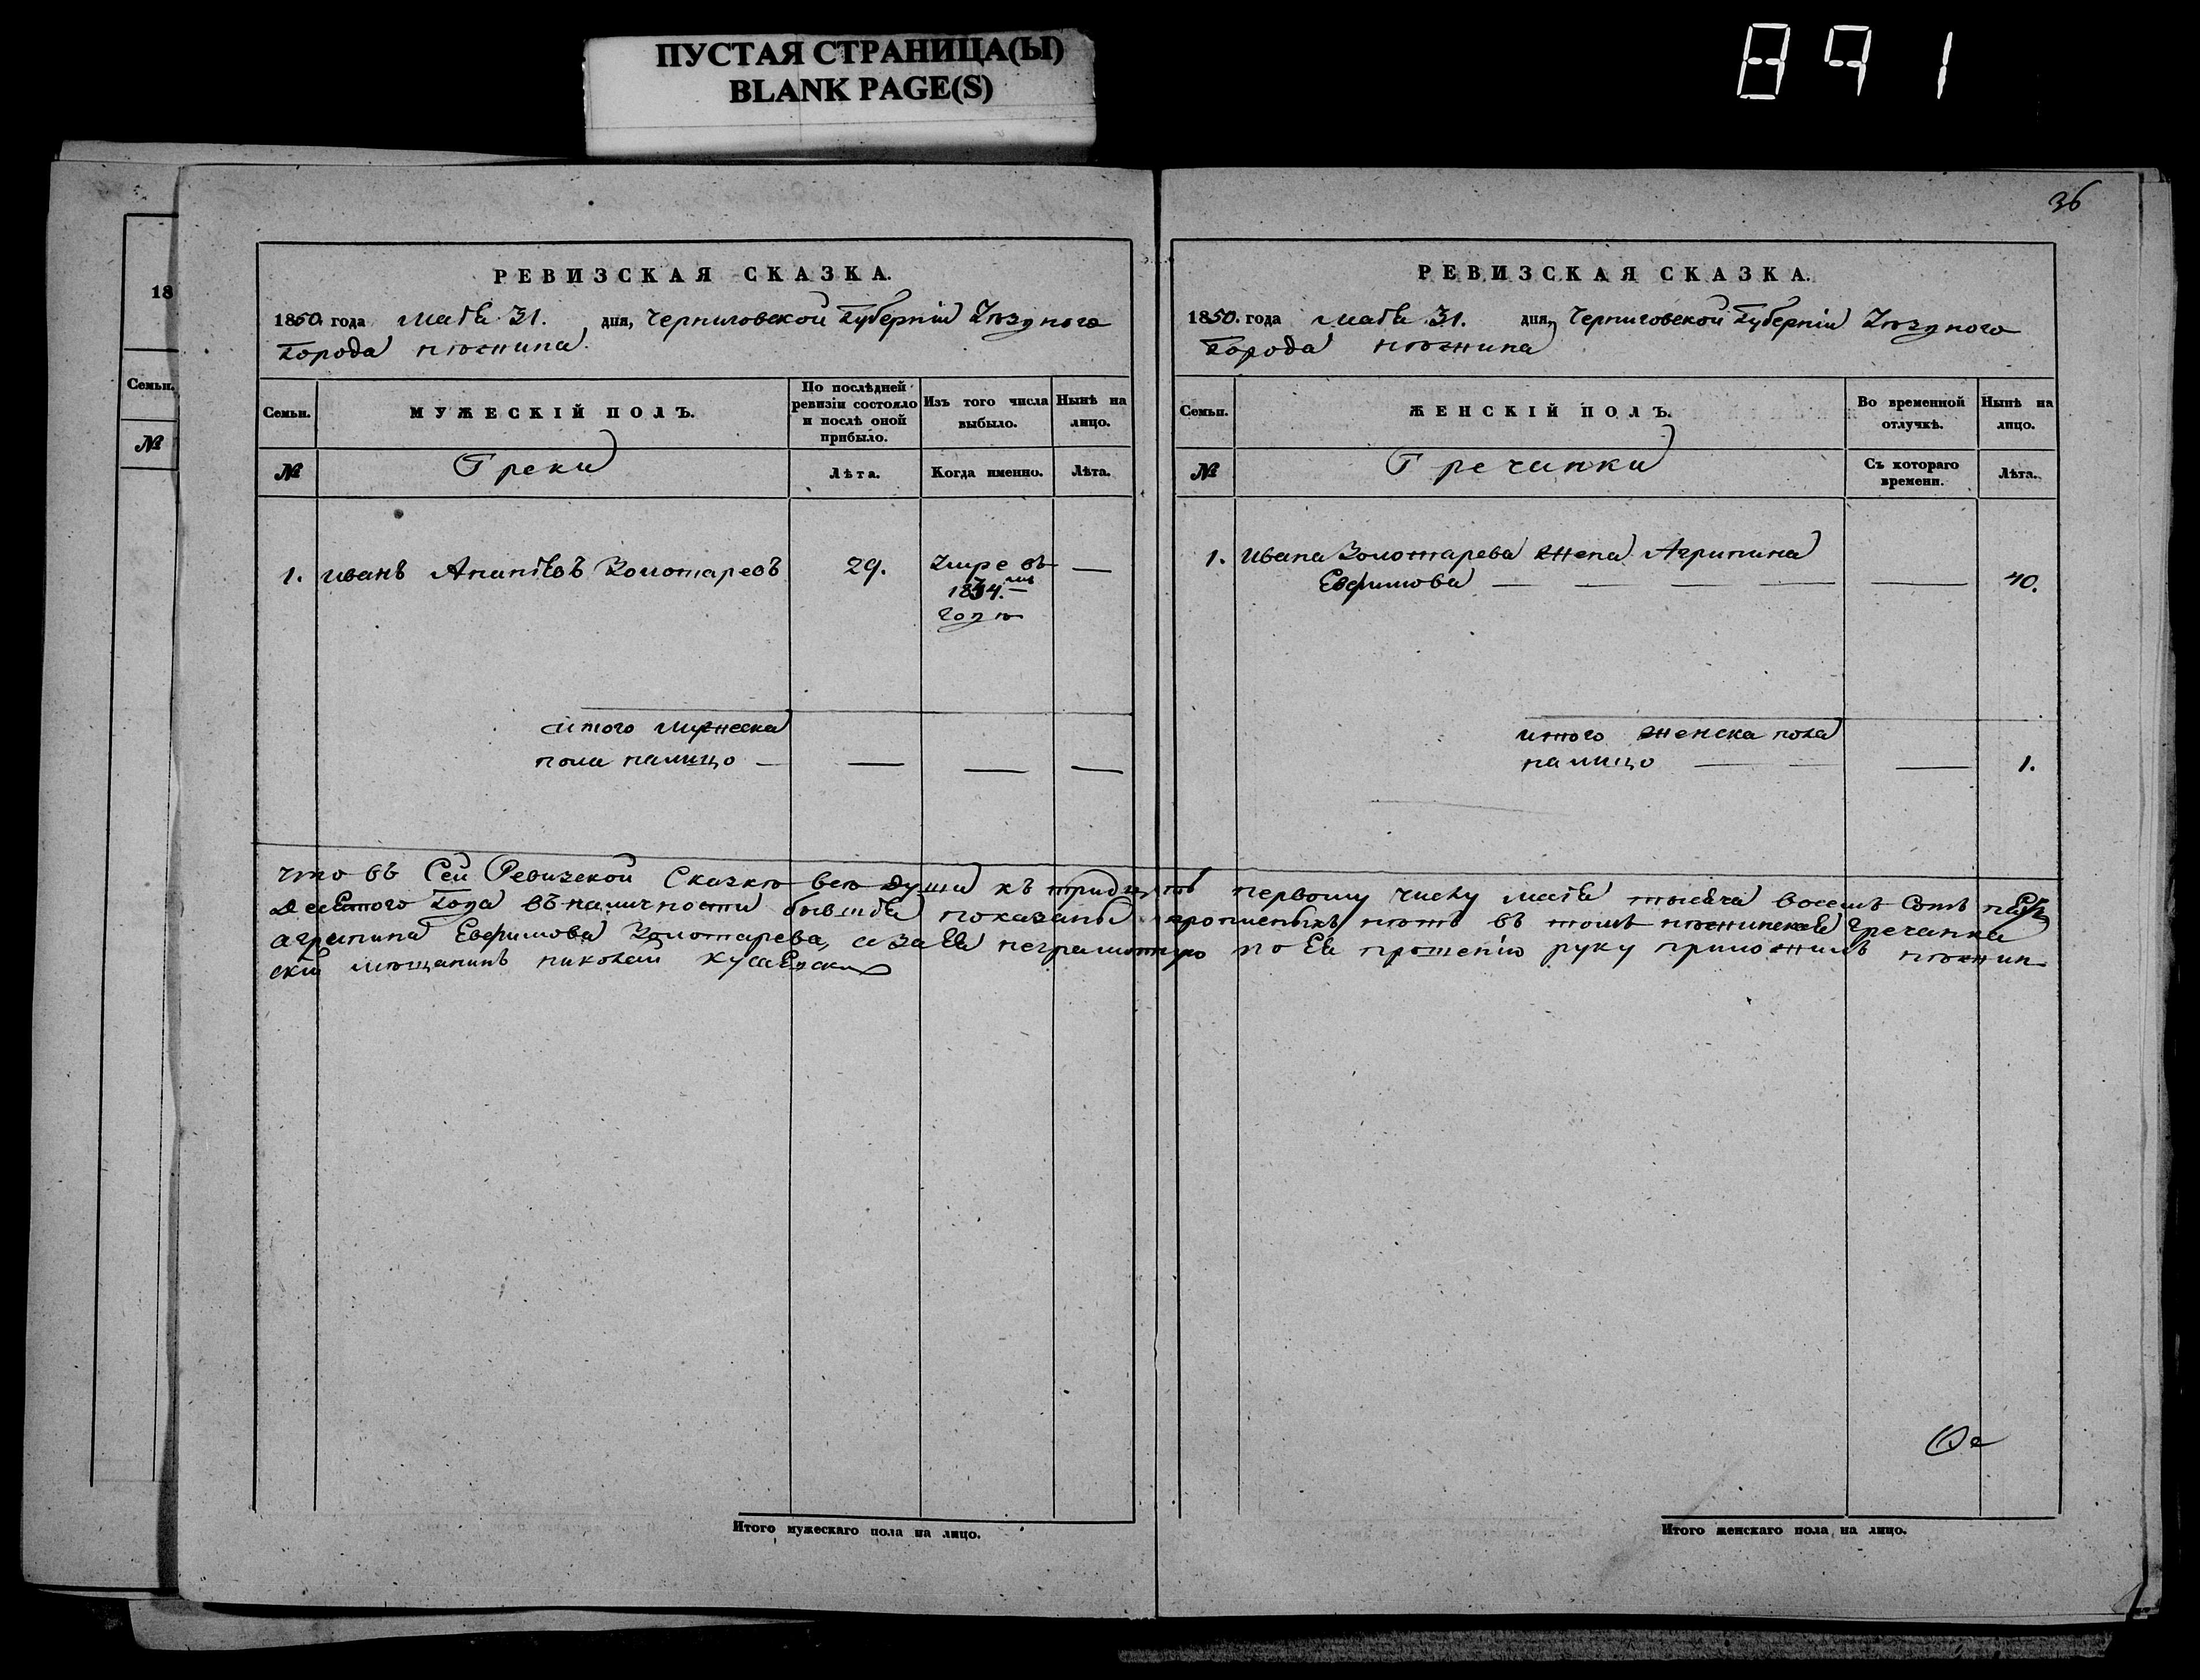 ПУСТАЯ СТРАНИЦА(Ы)
BLANK PAGE(S)
891
18
Семьи.
№
РЕВИЗСКАЯ СКАЗКА.
1850. года Маія 31. дня, Черниговской Губерніи Уѣздного
Города Нѣжина
Семьи.
МУЖЕСКІЙ ПОЛЪ.
По послѣдней ревизіи состояло и послѣ оной прибыло.
Изъ того числа выбыло.
Нынѣ на лицо.
№
Греки
Лѣта.
Когда именно.
Лѣта.
1. Иванъ Ананіевъ Золотаревъ 29. Умре въ —
1834.мъ
Годѣ
Итого Мужеска
пола налицо — — — —
36
РЕВИЗСКАЯ СКАЗКА.
1850. года Маія 31. дня, Черниговской Губерніи Уѣздного
Города Нѣжина
Семьи.
ЖЕНСКІЙ ПОЛЪ.
Во временной отлучкѣ.
Нынѣ на лицо.
№
Гречанки
Съ котораго времени.
Лѣта.
1. Ивана Золотарева жена Агрипина
Евфимова — — — — — 40.
Итого женска пола
налицо — — — 1.
что въ Сей Ревизской Сказкѣ всѣ души къ тридцать первому числу маія тысяча восемъ Сотъ пять
десятого Года въ наличности бывшія показаны и прописныхъ нѣтъ въ томъ нѣжинская Гречанка
агрипина Евфимова Золотарева, а за Ея неграмотную по Ея прошенію руку приложилъ нѣжин-
скій мѣщанинъ николай
Итого мужескаго пола на лицо.
Итого женскаго пола на лицо.